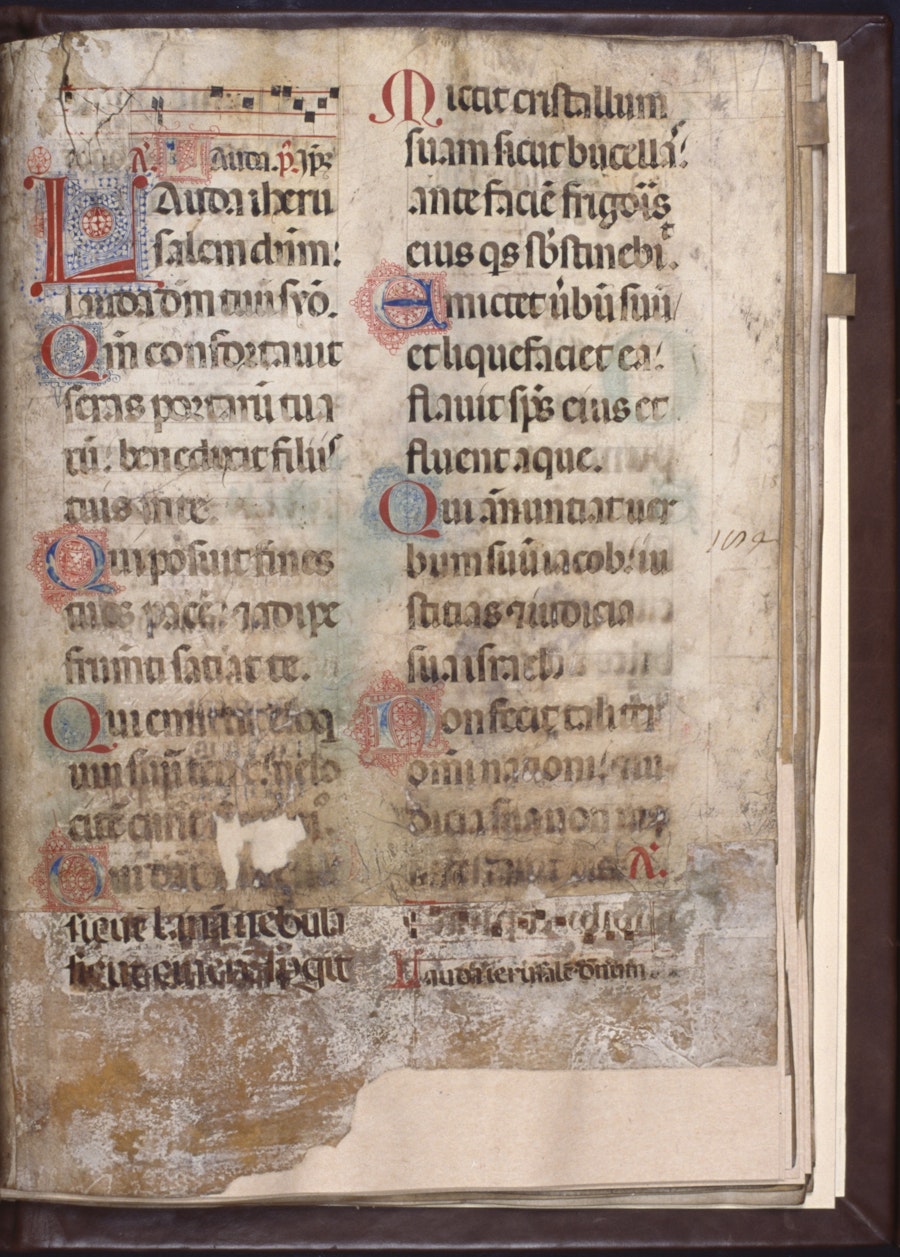 Lauda. p̄. ip̄s
Lauda iheru
salem dn̄m:
lauda dm̄ tuū syō.
Qm̄ confortauit
seras portarū tua
rū: benedixit filiis
tuis in te.
Qui posuit fines
tuos pacē: ⁊ adipe
frumēti satiat te.
Qui emittit eloq
uiū suū terre: uelo
citē currit
Qui dat
sicut lanā nebula
sicut cinerē spgit
Mittit cristallum
suam sicut bucellā:
ante faciē frigoris
eius qs sb̄stinebit.
Emittet ūbū suū
et liquefaciet ea:
flauit sp̄s eius et
fluent aque.
Qui ānuntiat uer
bum suū iacob: iu
stitias ⁊ iudicia
sua israel.
Non fecit taliter
omni nationi: ⁊ iu
dicia sua non ma
A.
Lauda ierusalē dominum.